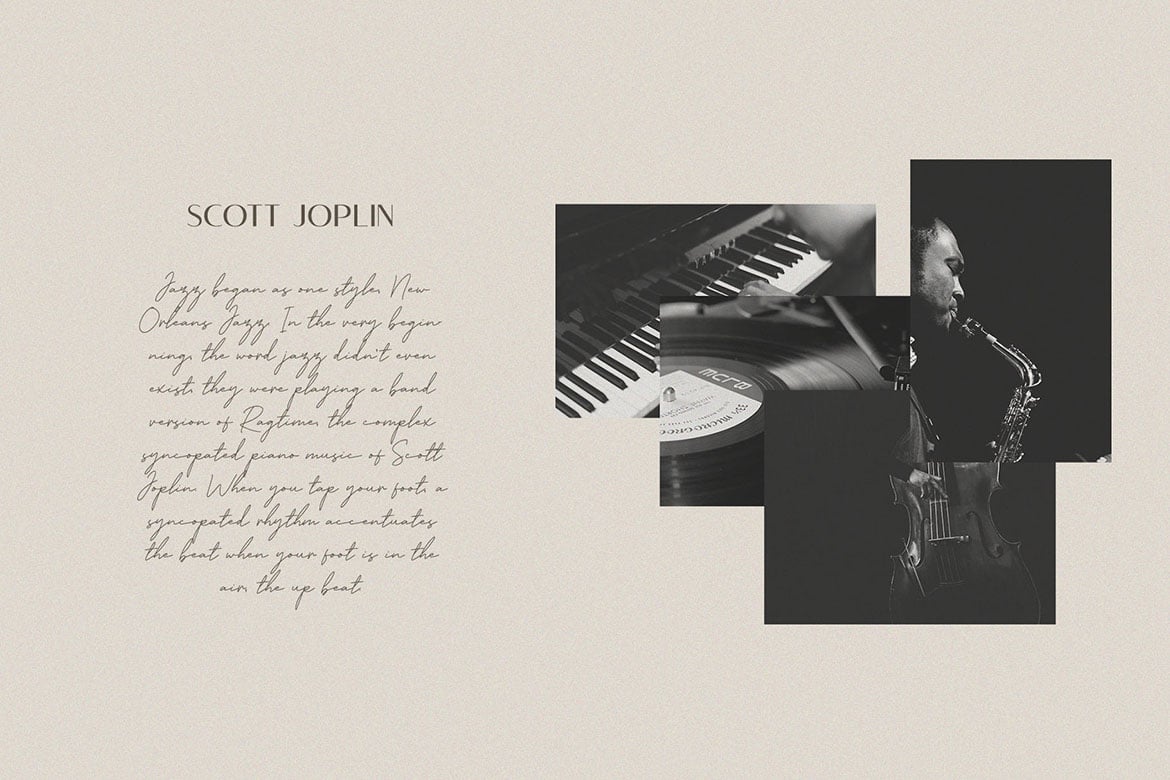 SCOTT JOPLIN
Jazz began as one style, New
Orleans Jazz. In the very begin-
ning, the word jazz didn't even
exist, they were playing a band
version of Ragtime, the complex
syncopated piano music of Scott
Joplin. When you tap your foot, a
syncopated rhythm accentuates
the beat when your foot is in the
air, the up beat.
mcra
33⅓ MICROGROO